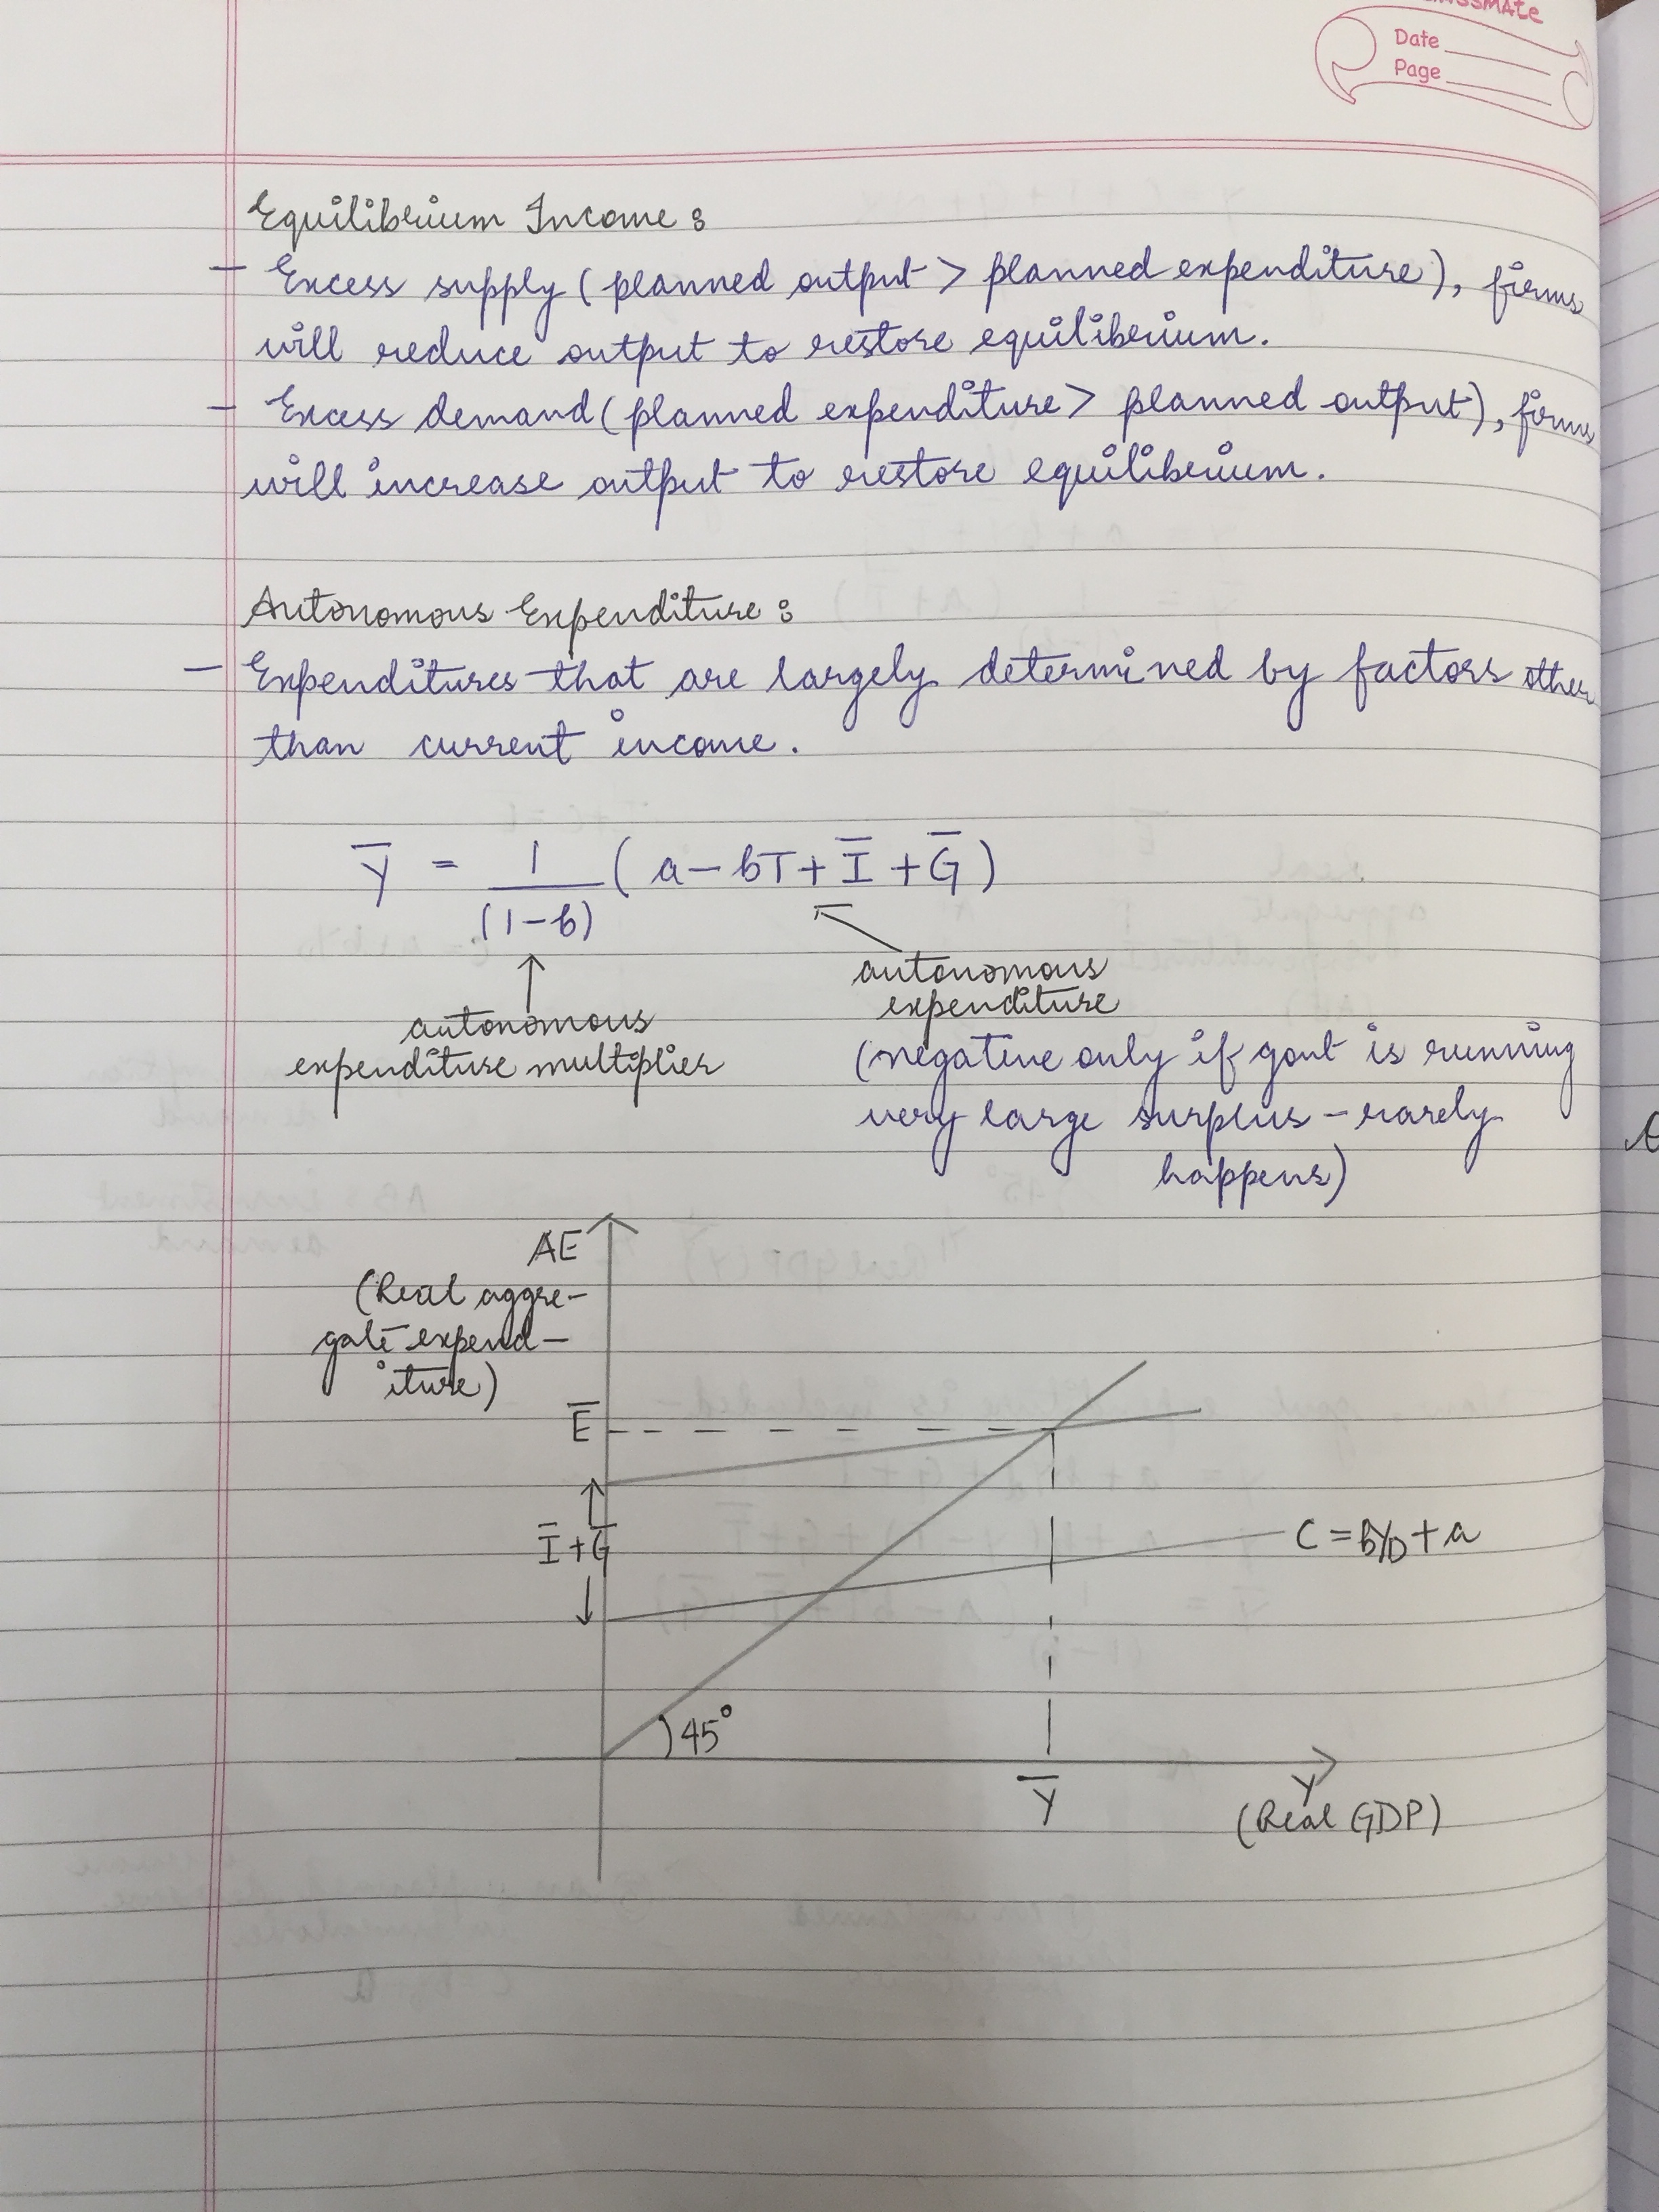 Date
Page
Equilibrium Income :
- Excess supply (planned output > planned expenditure), firms
will reduce output to restore equilibrium.
- Excess demand (planned expenditure > planned output), firms
will increase output to restore equilibrium.
Autonomous Expenditure :
- Expenditures that are largely determined by factors other
than current income.
Y̅ = 1/(1-b) (a - bT + I̅ + G̅)
autonomous
expenditure multiplier
autonomous
expenditure
(negative only if govt is running
very large surplus - rarely
happens)
AE
(Real aggre-
gate expend-
iture)
E̅
I̅ + G̅
C = bY_D + a
45°
Y̅
Y
(Real GDP)